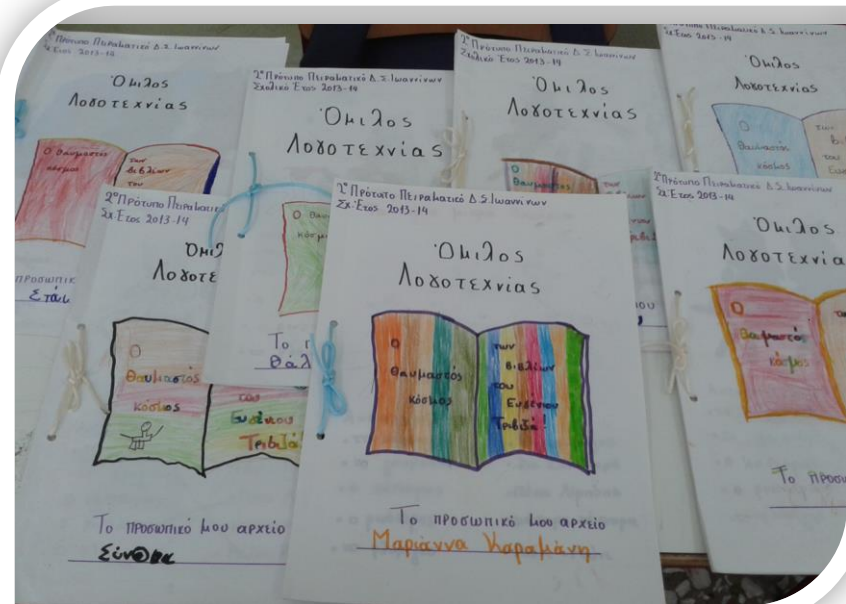 2º Πρότυπο Πειραματικό Δ.Σ. Ιωαννίνων
Σχ. Έτος 2013-14
Όμιλος
Λογοτεχνίας
Ο θαυμαστός
κόσμος
των
βιβλίων
του
προσωπικ
2º Πρότυπο Πειραματικό Δ.Σ. Ιωαννίνων
Σχολικό Έτος 2013-14
Όμιλος
Λογοτεχνίας
Ο θαυ
κόσμ
Το π
Θάλ
2º Πρότυπο Πειραματικό Δ.Σ. Ιωαννίνων
Σχ. Έτος 2013-14
Όμιλος
Λογοτεχνίας
Ο
θαυμαστός
των
Σχ. Έτος 2013-14
Όμιλος
Λογοτεχνίας
Ο
θαυμαστός
κόσμος
των
βιβ
του
Ευγε
2º Πρότυπο Πειραματικ
Σχ. Έτος 2013-14
Όμιλ
Λογοτε
Ο
θαυμαστός
κόσμος
του
Ευγένιου
Τριβιζά
Το προσωπικό μου αρχείο
2º Πρότυπο Πειραματικό Δ.Σ. Ιωαννίνων
Σχ. Έτος 2013-14
Όμιλος
Λογοτεχνίας
Ο
θαυμαστός
κόσμος
των
βιβλίων
του
Ευγένιου
Τριβιζά!
Το προσωπικό μου αρχείο
Μαριάννα Καραμάνη
2º Πρότυπο Πειραματικό Δ.Σ. Ιωαννίνων
Σχ. Έτος 2013-14
Όμιλος
Λογοτεχνία
Ο
θαυμαστός
κόσμος
Το προσω